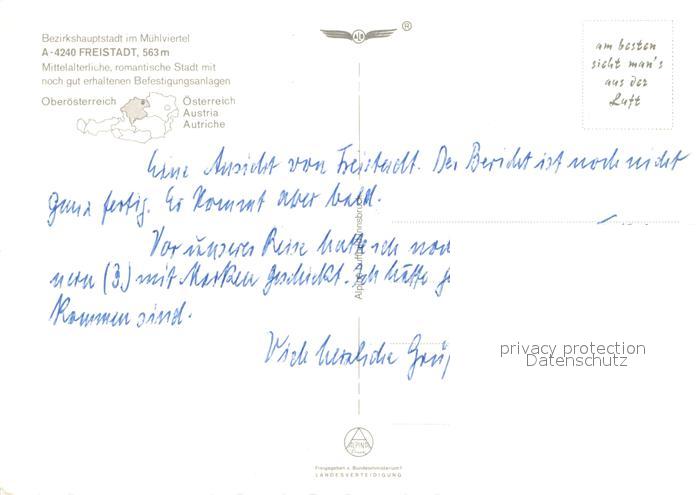 Bezirkshauptstadt im Mühlviertel
A-4240 FREISTADT, 563 m
Mittelalterliche, romantische Stadt mit
noch gut erhaltenen Befestigungsanlagen
Oberösterreich
Österreich
Austria
Autriche
®
am besten
sieht man's
aus der
Luft
Eine Ansicht von Freistadt. Der Bericht ist noch nicht
ganz fertig. Er kommt aber bald.
Vor unserer Reise hatte ich
(3.) mit Marken geschickt. Ich hätte
kommen sind.
Viele herzliche
Alpine Luftbild Innsbruck
privacy protection
Datenschutz
ALPINE
Freigegeben v. Bundesministerium f.
LANDESVERTEIDIGUNG